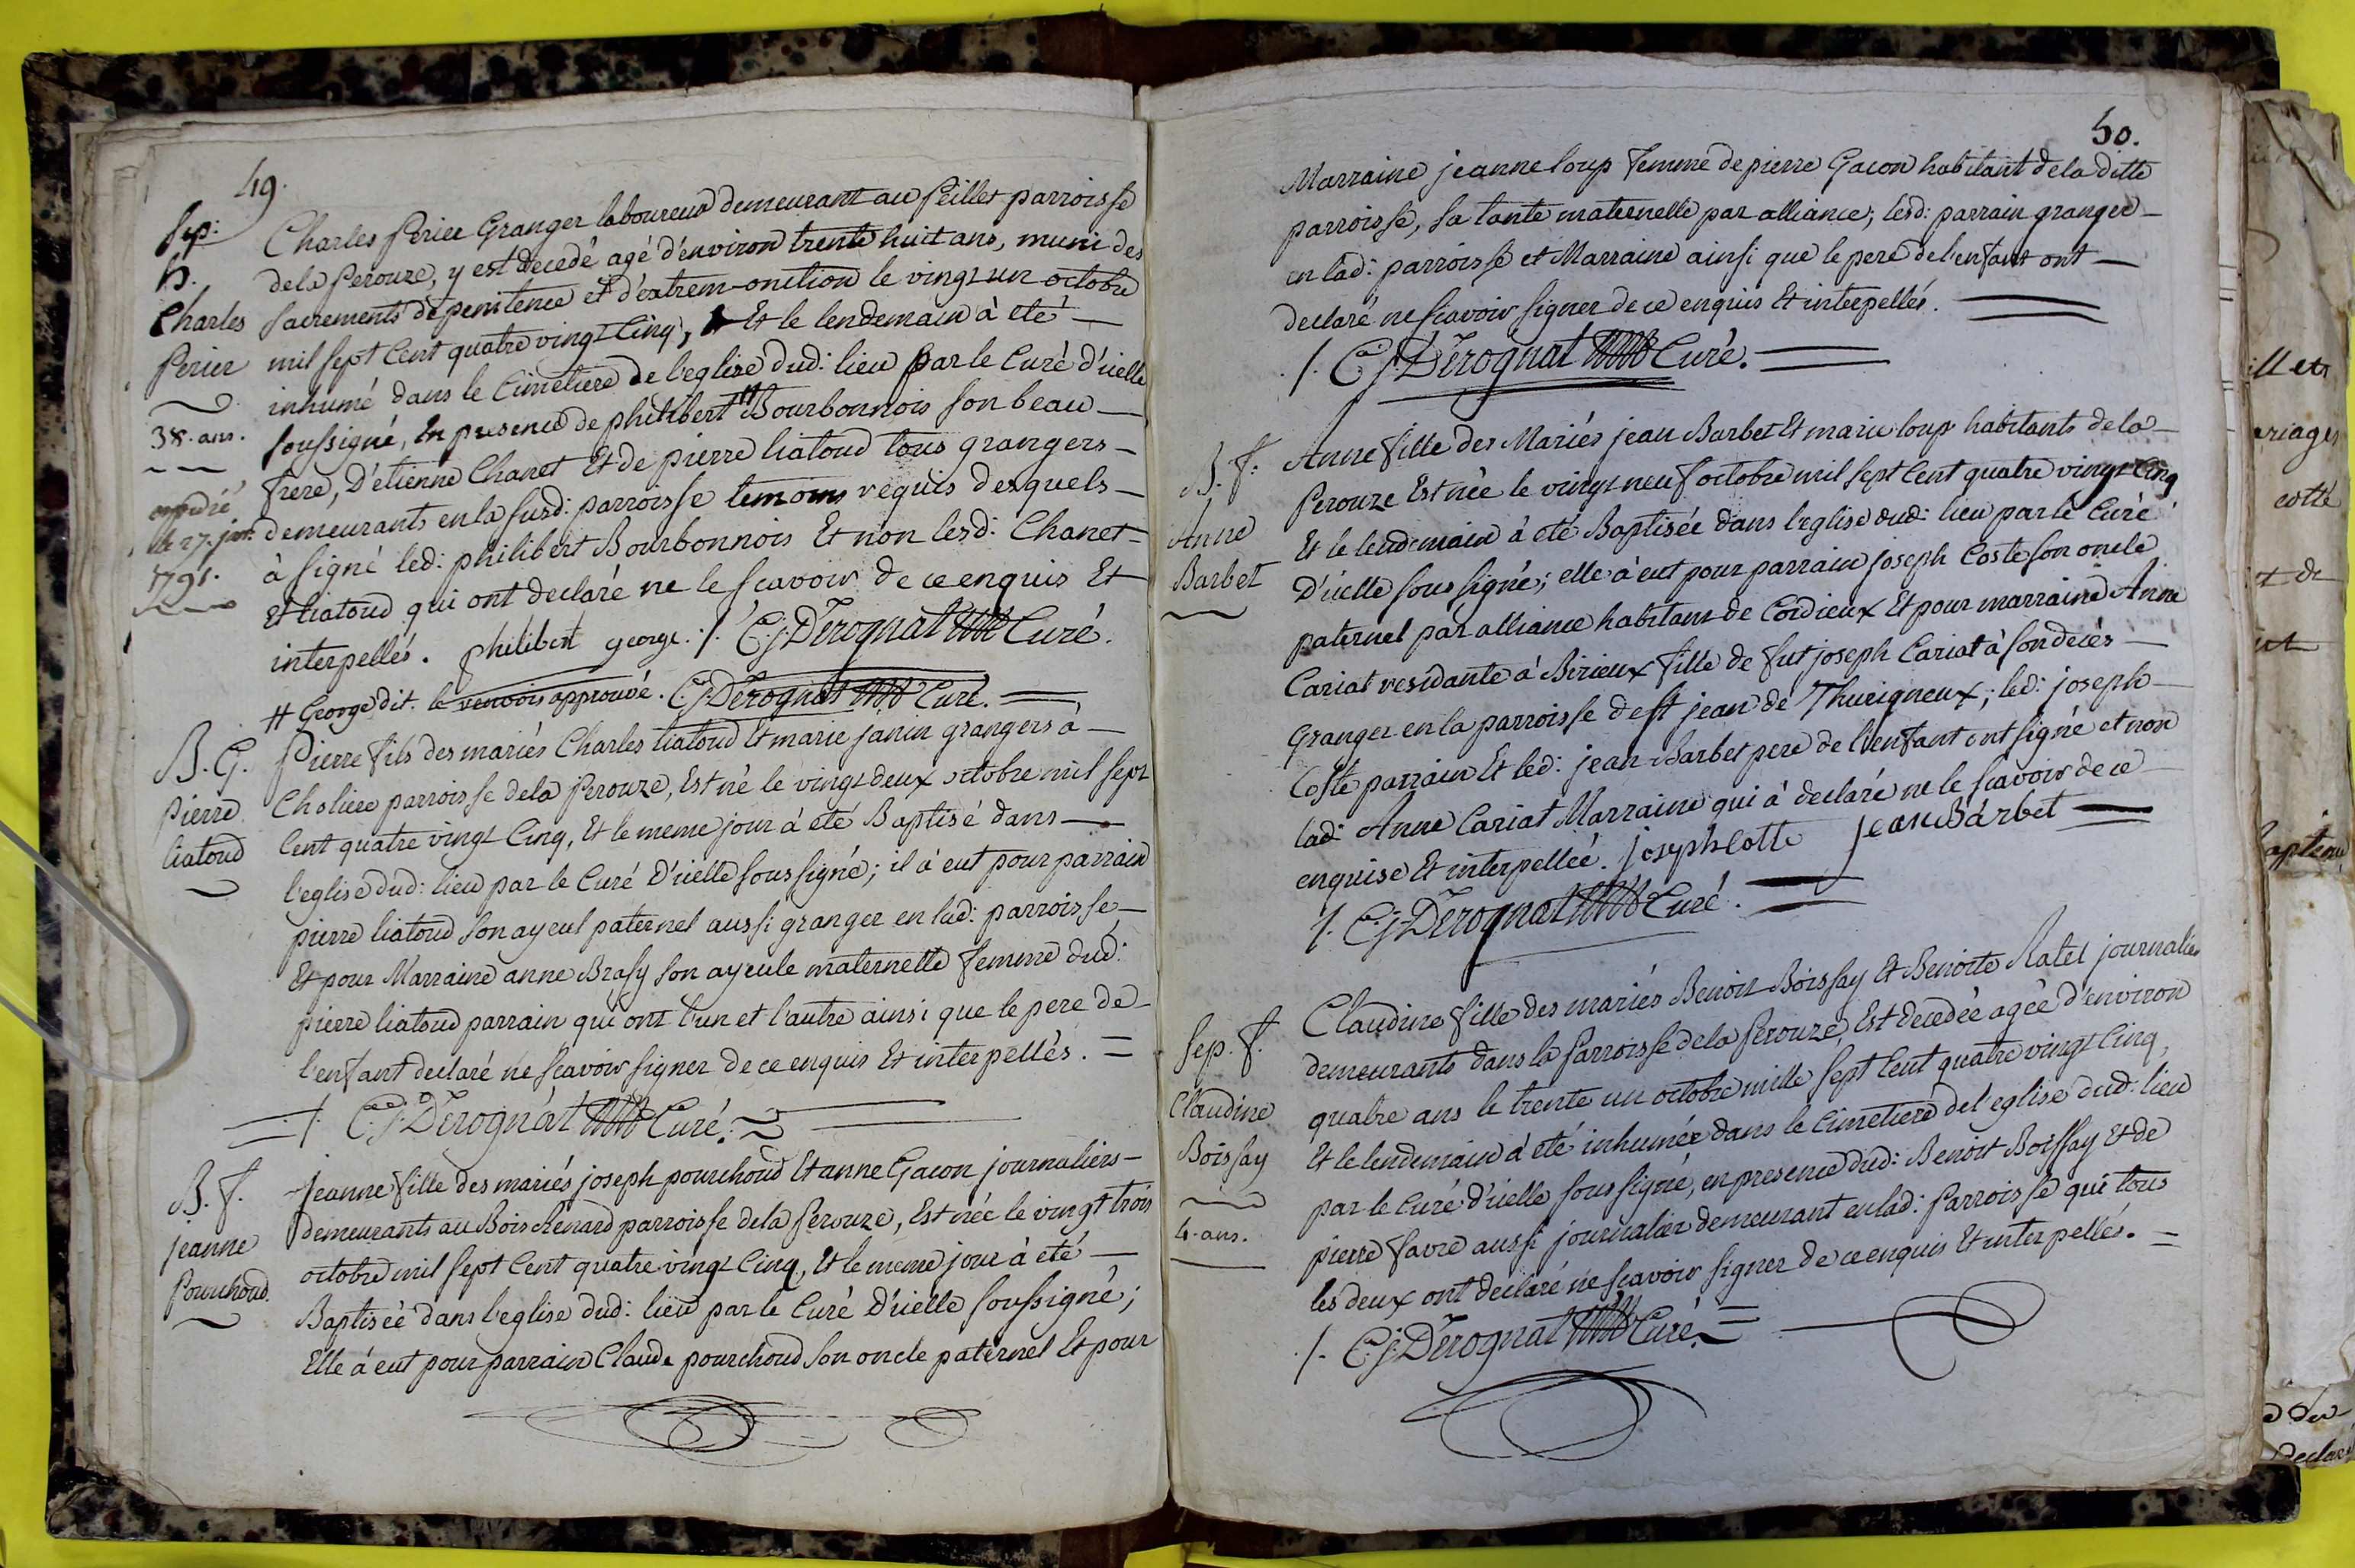 49.
Sep:
h.
Charles
Perier
38. ans.
expedié
le 27. juin
1791.
Charles Perier Granger laboureur demeurant au Peillet parroisse
dela Perouze, y est decedé agé d'environ trente huit ans, muni des
sacrements de penitence et d'extrem-onction le vingt un octobre
mil sept Cent quatre vingt Cinq, Et le lendemain à eté
inhumé dans le Cimetiere de l'eglise dud: lieu par le Curé d'icelle
soussigné, En presence de philibert # Bourbonnois son beau
frere, D'etienne Chanet Et de pierre liatoud tous grangers
demeurants en la susd: parroisse temoins requis desquels
à signé led: philibert Bourbonnois Et non lesd: Chanet
Et liatoud qui ont declaré ne le scavoir de ce enquis Et
interpellés. philibert george. /. C.j. Derognat Curé.
# George dit. le renvois approuvé. C.j. Derognat Curé.
B. G.
Pierre
liatoud
Pierre fils des mariés Charles liatoud Et marie janin grangers à
Choliere parroisse dela Perouze, Est né le vingt deux octobre mil sept
Cent quatre vingt Cinq, Et le meme jour à eté Baptisé dans
l'eglise dud: lieu par le Curé D'icelle soussigné; il à eut pour parrain
pierre liatoud son ayeul paternel aussi granger en lad: parroisse
Et pour Marraine anne Brasy son ayeule maternelle femme dud:
pierre liatoud parrain qui ont l'un et l'autre ainsi que le pere de
l'enfant declaré ne scavoir signer de ce enquis Et interpellés.
/. C.j. Derognat Curé.
B. f.
jeanne
Pourchoud.
jeanne fille des mariés joseph pourchoud Et anne Gacon journaliers
demeurants au Bois Renard parroisse dela Perouze, Est née le vingt trois
octobre mil sept Cent quatre vingt Cinq, Et le meme jour à eté
Baptisée dans l'eglise dud: lieu par le Curé D'icelle soussigné;
Elle à eut pour parrain Claude pourchoud son oncle paternel Et pour
50.
Marraine jeanne loup femme de pierre Gacon habitant dela ditte
parroisse, sa tante maternelle par alliance; lesd: parrain granger
en lad: parroisse et Marraine ainsi que le pere de l'enfant ont
declaré ne scavoir signer de ce enquis Et interpellés.
/. C.j. Derognat Curé.
B. f.
Anne
Barbet
Anne fille des Mariés jean Barbet Et marie loup habitants dela
Perouze Est née le vingt neuf octobre mil sept Cent quatre vingt Cinq
Et le lendemain à eté Baptisée dans l'eglise dud: lieu par le Curé
D'icelle soussigné; elle à eut pour parrain joseph Coste son oncle
paternel par alliance habitant de Cordieux Et pour marraine Anne
Cariat residante à Birieux fille de fut joseph Cariat à son decès
Granger en la parroisse de st jean de Thurigneux; led: joseph
Coste parrain Et led: jean Barbet pere de l'enfant ont signé et non
lad: Anne Cariat Marraine qui à declaré ne le scavoir de ce
enquise Et interpellée. joseph Cotte jean Barbet
/. C.j. Derognat Curé.
Sep. f.
Claudine
Boissay
4. ans.
Claudine fille des mariés Benoit Boissay Et Benoite Ratel journaliers
demeurants dans la Parroisse dela Perouze, Est decedée agée d'environ
quatre ans le trente un octobre mille sept Cent quatre vingt Cinq,
Et le lendemain à eté inhumée dans le Cimetiere de l'eglise dud: lieu
par le Curé d'icelle soussigné, en presence dud: Benoit Boissay Et de
pierre favre aussi journalier demeurant en lad: Parroisse qui tous
les deux ont declaré ne scavoir signer de ce enquis Et interpellés.
/. C.j. Derognat Curé.